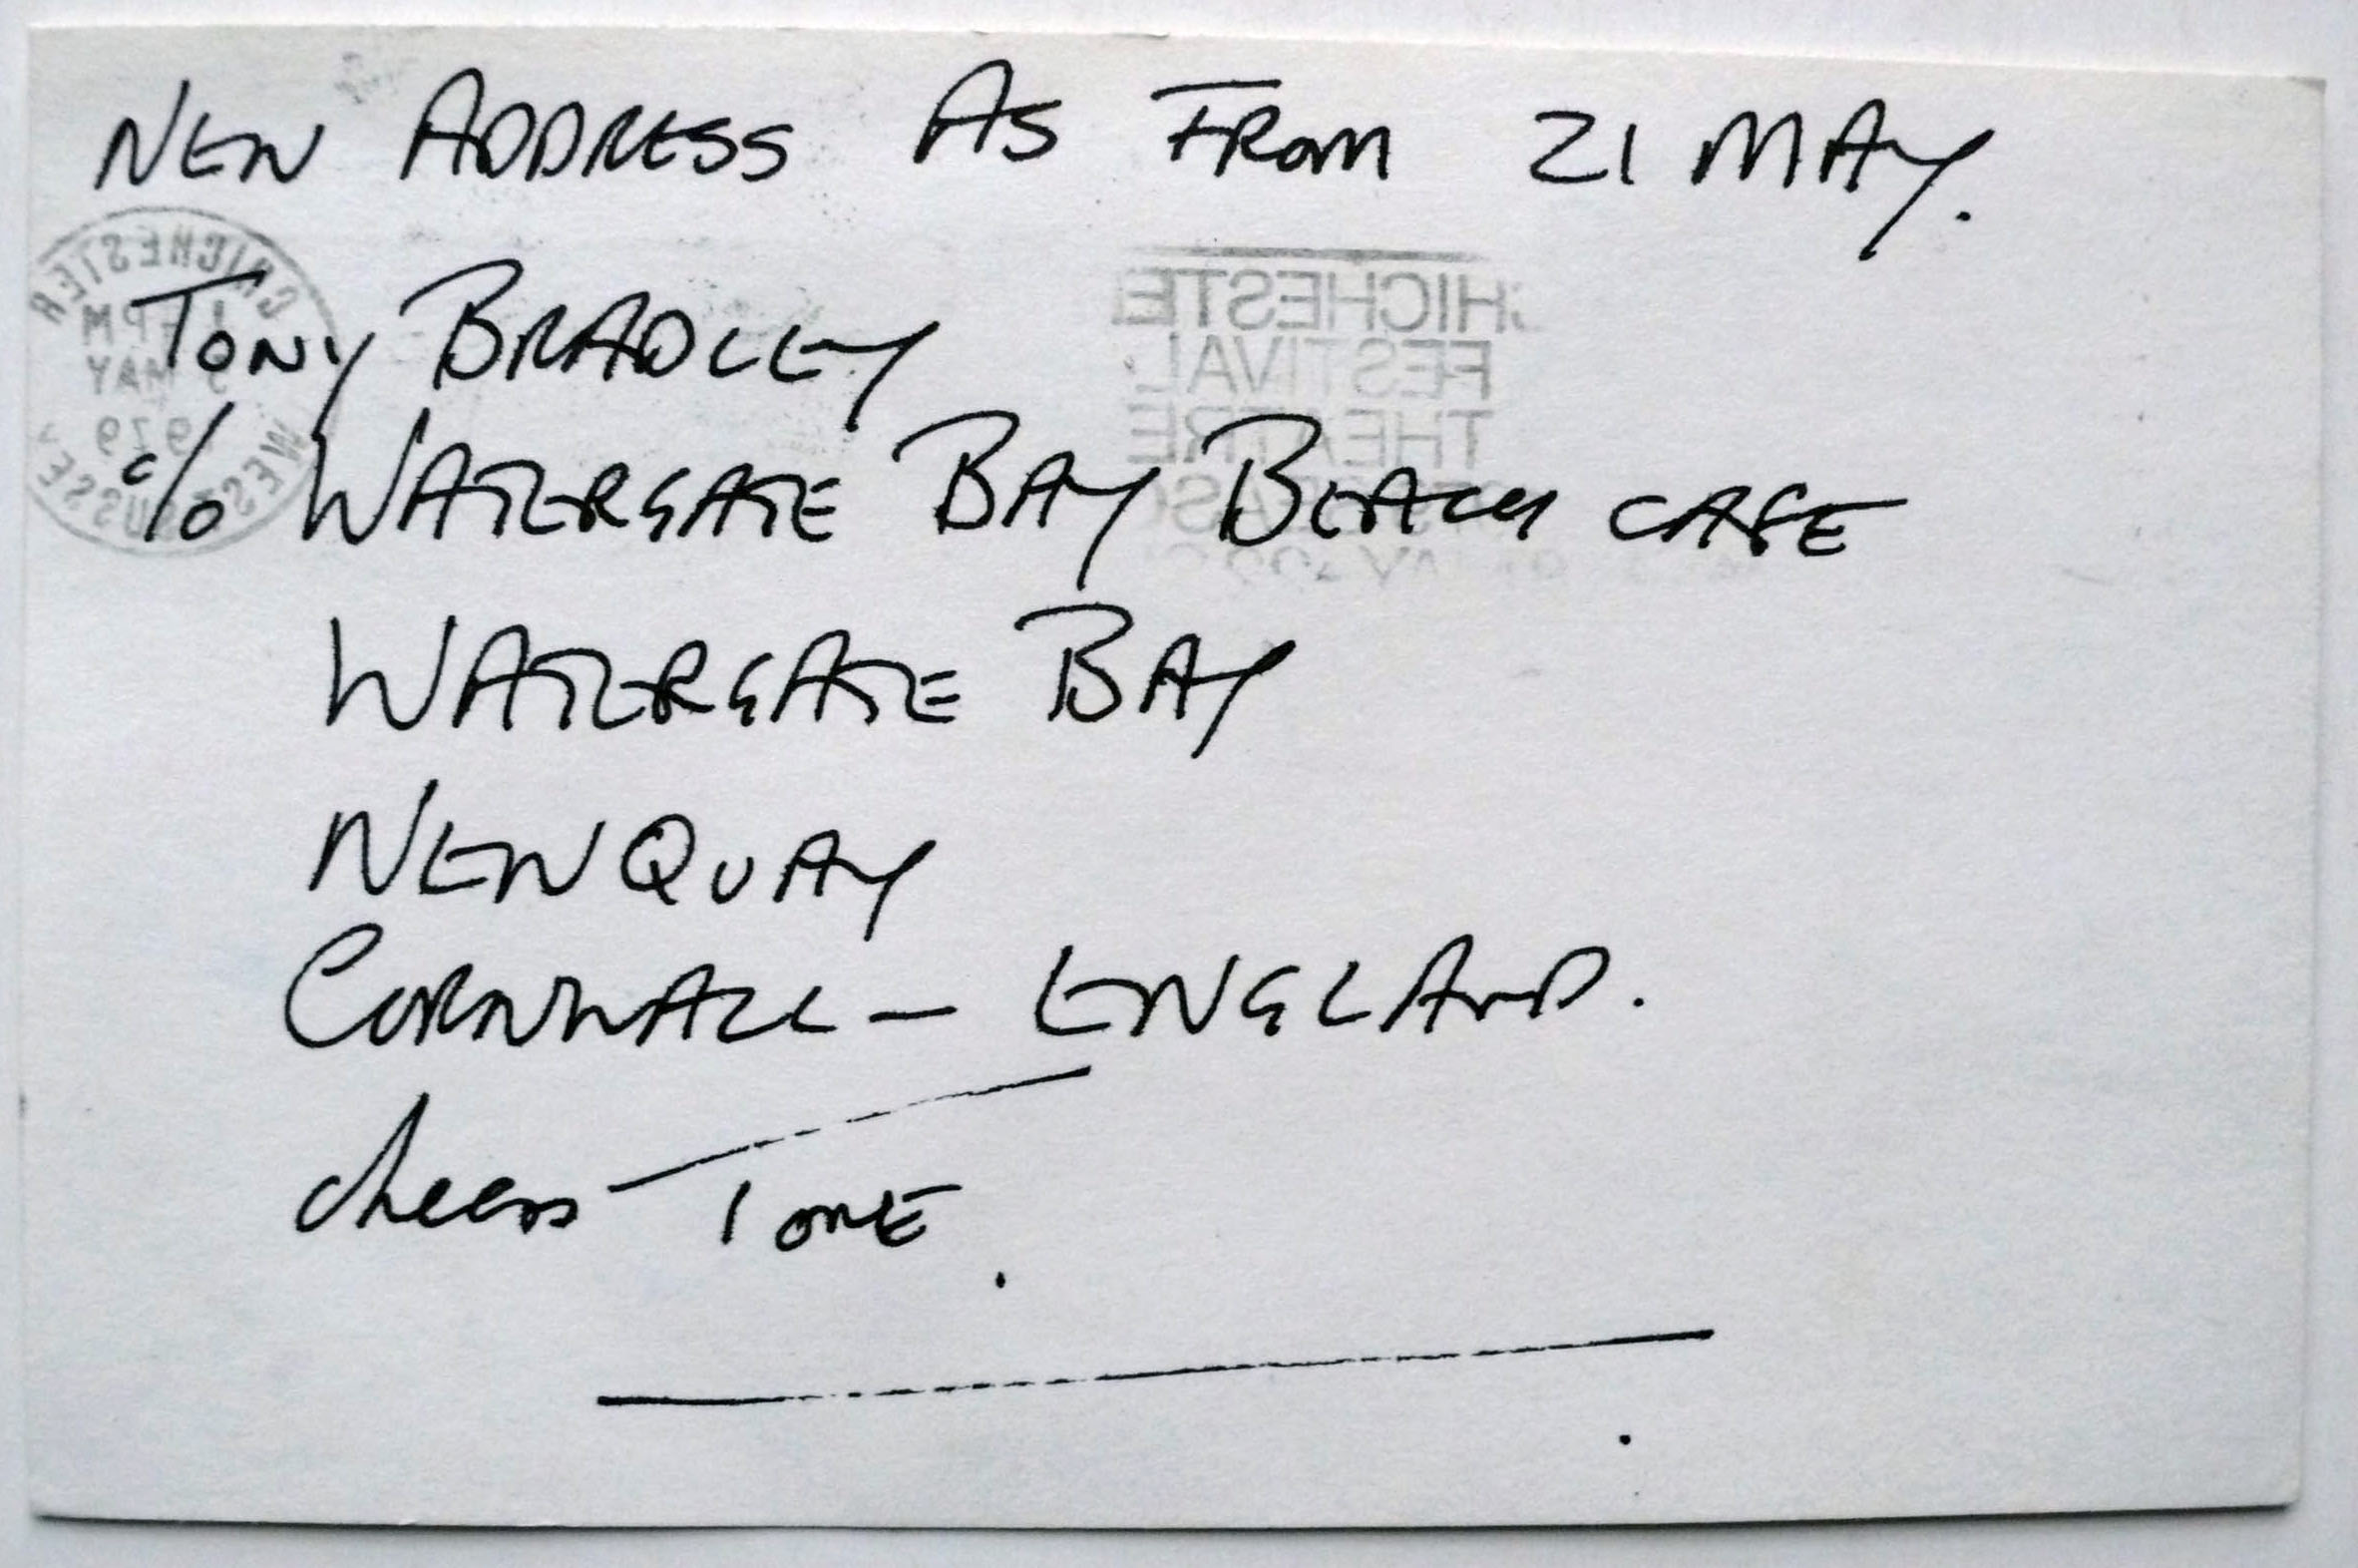 NEW ADDRESS AS FROM 21 MAY.
TONY BRADLEY
c/o WATERGATE BAY BEACH CAFE
WATERGATE BAY
NEWQUAY
CORNWALL - ENGLAND.
cheers TONE.
CHICHESTER
PM
MAY
WEST SUSSEX
HICHESTE
FESTIVAL
THEATRE